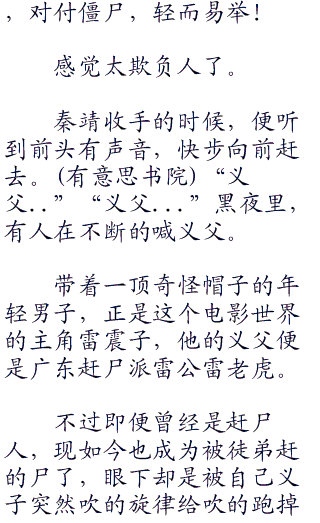 ，对付僵尸，轻而易举！
感觉太欺负人了。
秦靖收手的时候，便听
到前头有声音，快步向前赶
去。(有意思书院) “义
父..” “义父...” 黑夜里，
有人在不断的喊义父。
带着一顶奇怪帽子的年
轻男子，正是这个电影世界
的主角雷震子，他的义父便
是广东赶尸派雷公雷老虎。
不过即便曾经是赶尸
人，现如今也成为被徒弟赶
的尸了，眼下却是被自己义
子突然吹的旋律给吹的跑掉